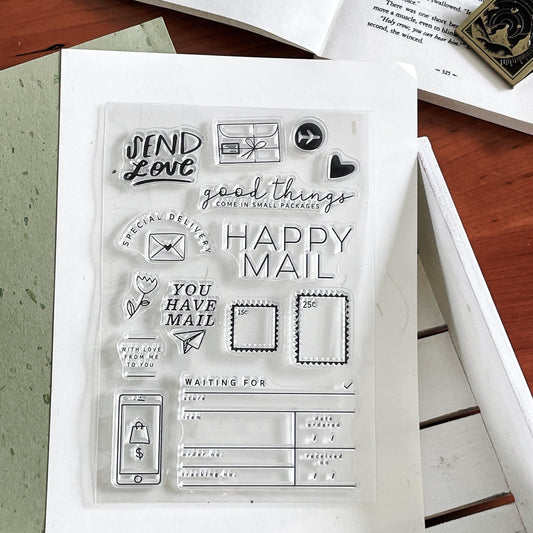 swallowed. "I
move a muscle, even to blink
There was one short
"Holy crow, you can hear him?"
second, the winced.
— 325 —
SEND
Love
good things
COME IN SMALL PACKAGES
SPECIAL DELIVERY
HAPPY
MAIL
YOU
HAVE
MAIL
15¢
25¢
WITH LOVE
FROM ME
TO YOU
WAITING FOR
store
item
date
ordered
/ /
order no.
received
on
tracking no.
/ /
$